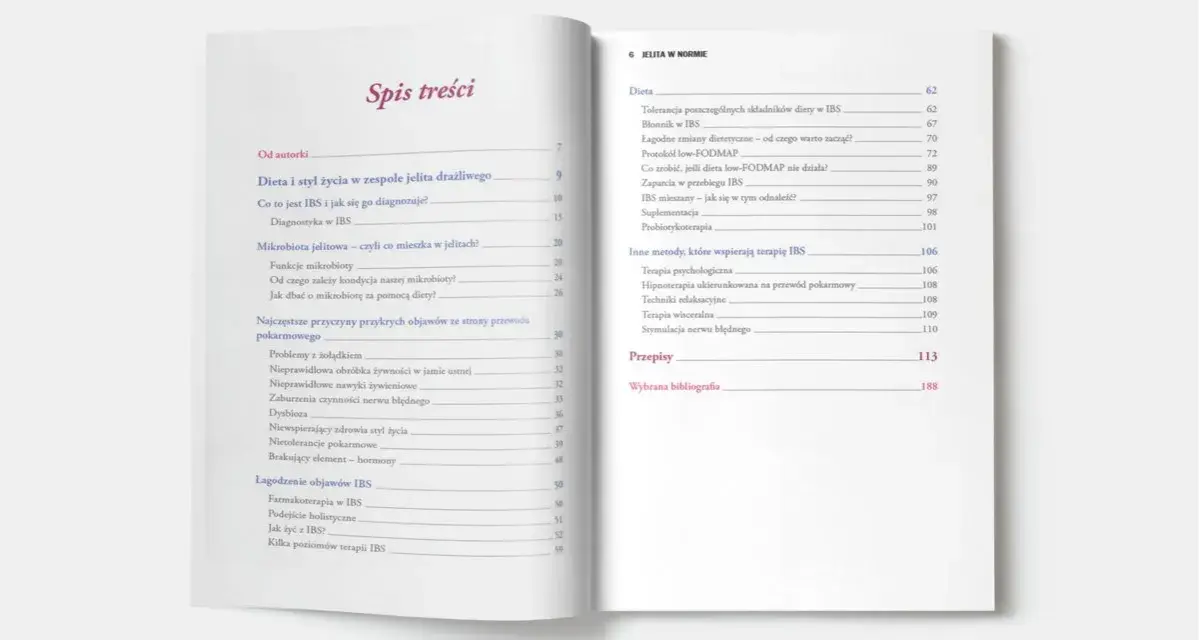 Spis treści
Od autorki 7
Dieta i styl życia w zespole jelita drażliwego 9
Co to jest IBS i jak się go diagnozuje? 10
Diagnostyka w IBS 15
Mikrobiota jelitowa – czyli co mieszka w jelitach? 20
Funkcje mikrobioty 20
Od czego zależy kondycja naszej mikrobioty? 24
Jak dbać o mikrobiotę za pomocą diety? 26
Najczęstsze przyczyny przykrych objawów ze strony przewodu
pokarmowego 30
Problemy z żołądkiem
Nieprawidłowa obróbka żywności w jamie ustnej 32
Nieprawidłowe nawyki żywieniowe 32
Zaburzenia czynności nerwu błędnego 33
Dysbioza 36
Niewspierający zdrowia styl życia 37
Nietolerancje pokarmowe 39
Brakujący element – hormony 48
Łagodzenie objawów IBS 50
Farmakoterapia w IBS 50
Podejście holistyczne 51
Jak żyć z IBS? 52
Kilka poziomów terapii IBS 59
6 JELITA W NORMIE
Dieta 62
Tolerancja poszczególnych składników diety w IBS 62
Błonnik w IBS 67
Łagodne zmiany dietetyczne – od czego warto zacząć? 70
Protokół low-FODMAP 72
Co zrobić, jeśli dieta low-FODMAP nie działa? 89
Zaparcia w przebiegu IBS 90
IBS mieszany – jak się w tym odnaleźć? 97
Suplementacja 98
Probiotykoterapia 101
Inne metody, które wspierają terapię IBS 106
Terapia psychologiczna 106
Hipnoterapia ukierunkowana na przewód pokarmowy 108
Techniki relaksacyjne 108
Terapia wisceralna 109
Stymulacja nerwu błędnego 110
Przepisy 113
Wybrana bibliografia 188